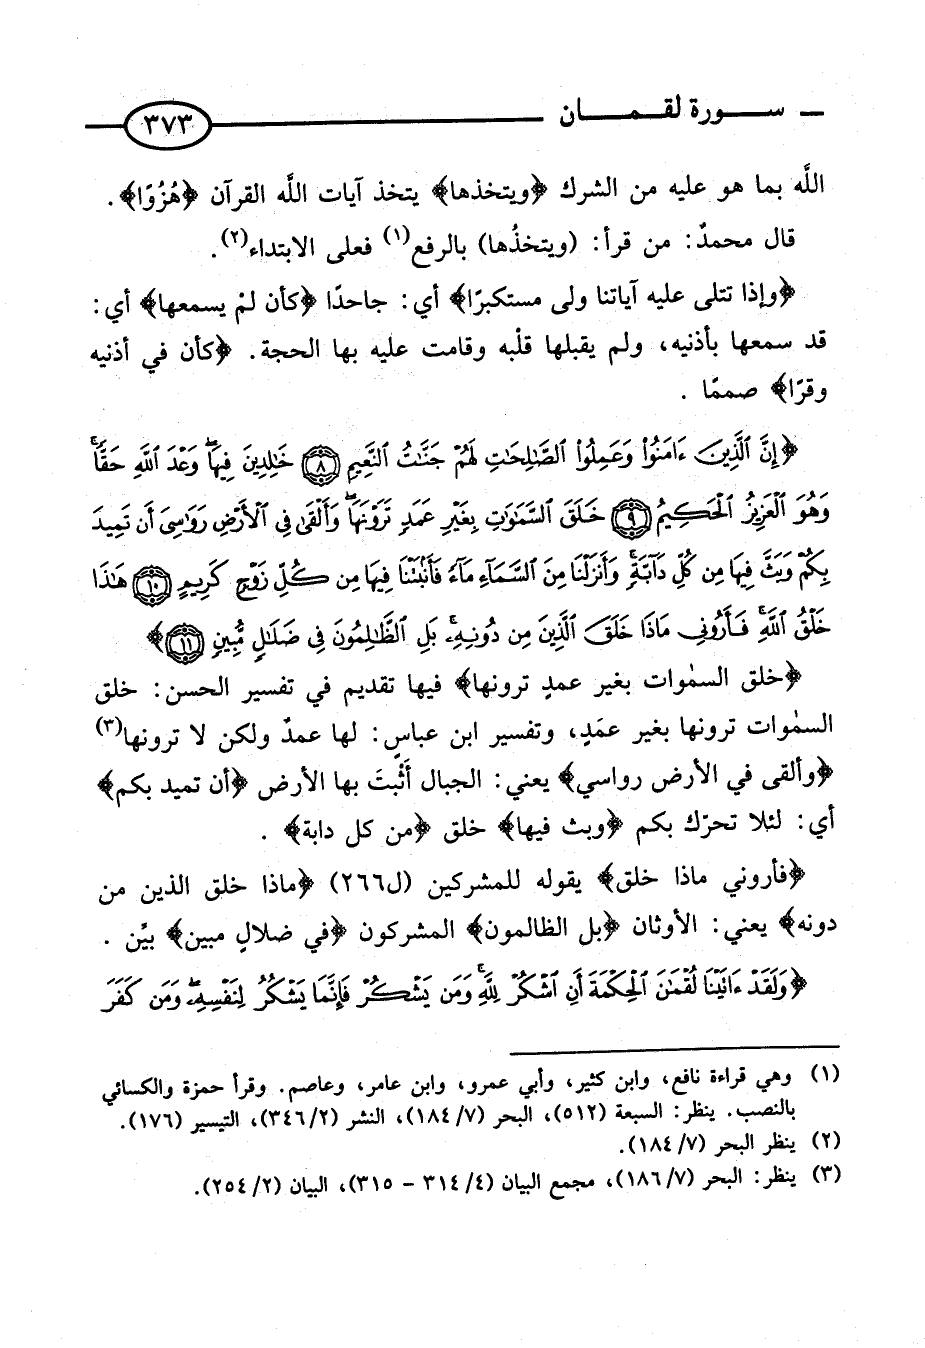 سورة لقمان ٣٧٣
اللَّه بما هو عليه من الشرك ﴿ويتخذها﴾ يتخذ آيات اللَّه القرآن ﴿هُزُوًا﴾ .
قال محمدٌ: من قرأ: (ويتخذُها) بالرفع(١) فعلى الابتداء(٢).
﴿وإذا تتلى عليه آياتنا ولى مستكبرًا﴾ أي: جاحدًا ﴿كأن لمْ يسمعها﴾ أي:
قد سمعها بأذنيه، ولم يقبلها قلْبه وقامت عليه بها الحجة. ﴿كأن في أذنيه
وقرًا﴾ صممًا .
﴿إِنَّ ٱلَّذِينَ ءَامَنُوا۟ وَعَمِلُوا۟ ٱلصَّـٰلِحَـٰتِ لَهُمْ جَنَّـٰتُ ٱلنَّعِيمِ ٨ خَـٰلِدِينَ فِيهَا ۖ وَعْدَ ٱللَّهِ حَقًّا ۚ
وَهُوَ ٱلْعَزِيزُ ٱلْحَكِيمُ ٩ خَلَقَ ٱلسَّمَـٰوَٰتِ بِغَيْرِ عَمَدٍ تَرَوْنَهَا ۖ وَأَلْقَىٰ فِى ٱلْأَرْضِ رَوَٰسِىَ أَن تَمِيدَ
بِكُمْ وَبَثَّ فِيهَا مِن كُلِّ دَآبَّةٍ ۚ وَأَنزَلْنَا مِنَ ٱلسَّمَآءِ مَآءً فَأَنۢبَتْنَا فِيهَا مِن كُلِّ زَوْجٍ كَرِيمٍ ١٠ هَـٰذَا
خَلْقُ ٱللَّهِ فَأَرُونِى مَاذَا خَلَقَ ٱلَّذِينَ مِن دُونِهِۦ ۚ بَلِ ٱلظَّـٰلِمُونَ فِى ضَلَـٰلٍ مُّبِينٍ ١١﴾
﴿خلق السمٰوات بغير عمدٍ ترونها﴾ فيها تقديم في تفسير الحسن: خلق
السمٰوات ترونها بغير عمَدٍ، وتفسير ابن عباسٍ: لها عمدٌ ولكن لا ترونها(٣)
﴿وألقى في الأرض رواسي﴾ يعني: الجبال أَثْبتَ بها الأرض ﴿أن تميد بكم﴾
أي: لئلا تحرّك بكم ﴿وبث فيها﴾ خلق ﴿من كل دابة﴾ .
﴿فأروني ماذا خلق﴾ يقوله للمشركين (ل٢٦٦) ﴿ماذا خلق الذين من
دونه﴾ يعني: الأوثان ﴿بل الظالمون﴾ المشركون ﴿في ضلالٍ مبين﴾ بيِّن .
﴿وَلَقَدْ ءَاتَيْنَا لُقْمَـٰنَ ٱلْحِكْمَةَ أَنِ ٱشْكُرْ لِلَّهِ ۚ وَمَن يَشْكُرْ فَإِنَّمَا يَشْكُرُ لِنَفْسِهِۦ ۖ وَمَن كَفَرَ
(١) وهي قراءة نافع، وابن كثير، وأبي عمرو، وابن عامر، وعاصم. وقرأ حمزة والكسائي
بالنصب. ينظر: السبعة (٥١٢)، البحر (٧/ ١٨٤)، النشر (٢/ ٣٤٦)، التيسير (١٧٦).
(٢) ينظر البحر (٧/ ١٨٤).
(٣) ينظر: البحر (٧/ ١٨٦)، مجمع البيان (٤/ ٣١٤ - ٣١٥)، البيان (٢/ ٢٥٤).